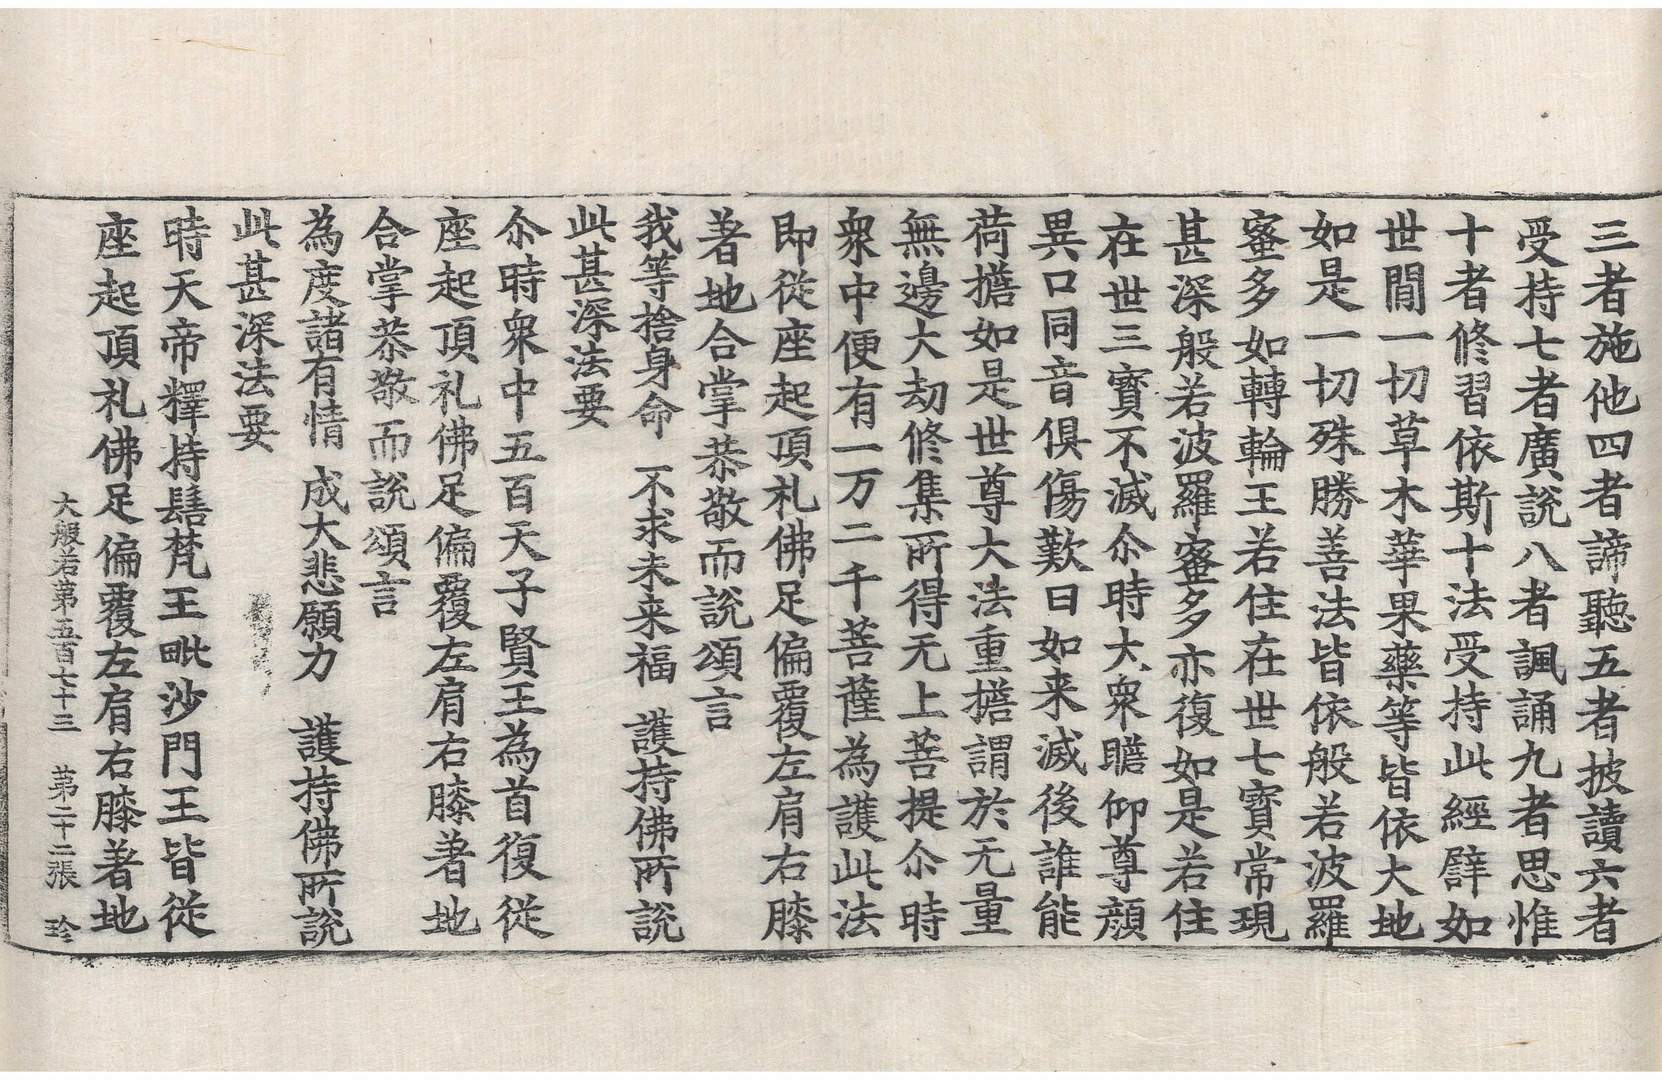 三者施他四者諦聽五者披讀六者
受持七者廣說八者諷誦九者思惟
十者修習依斯十法受持此經譬如
世間一切草木華果藥等皆依大地
如是一切殊勝善法皆依般若波羅
蜜多如轉輪王若住在世七寶常現
甚深般若波羅蜜多亦復如是若住
在世三寶不滅尒時大衆瞻仰尊顔
異口同音俱傷歎曰如来滅後誰能
荷擔如是世尊大法重擔謂於无量
無邊大劫修集所得无上菩提尒時
衆中便有一万二千菩薩為護此法
即從座起頂礼佛足偏覆左肩右膝
著地合掌恭敬而說頌言
我等捨身命　不求未来福　護持佛所說
此甚深法要
尒時衆中五百天子賢王為首復從
座起頂礼佛足偏覆左肩右膝著地
合掌恭敬而說頌言
為度諸有情　成大悲願力　護持佛所說
此甚深法要
時天帝釋持髻梵王毗沙門王皆從
座起頂礼佛足偏覆左肩右膝著地
大般若第五百七十三　第二十二張　珎